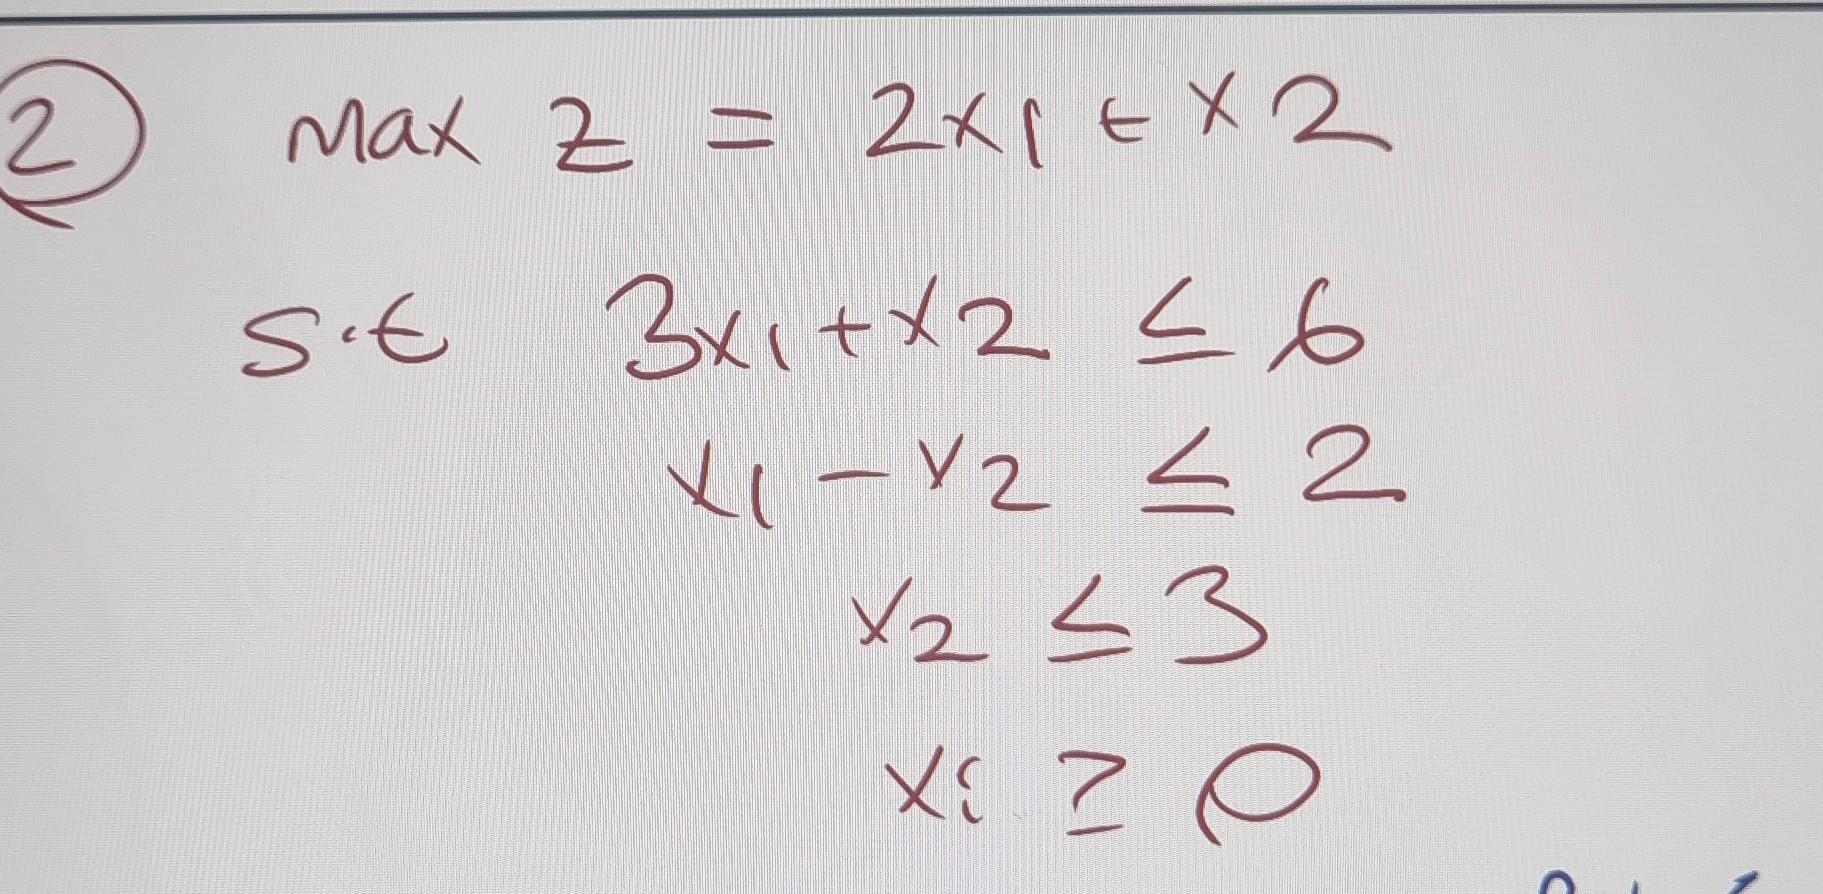 2 Max Z = 2x1 + x2
S.t 3x1 + x2 ≤ 6
x1 - x2 ≤ 2
x2 ≤ 3
xi ≥ 0